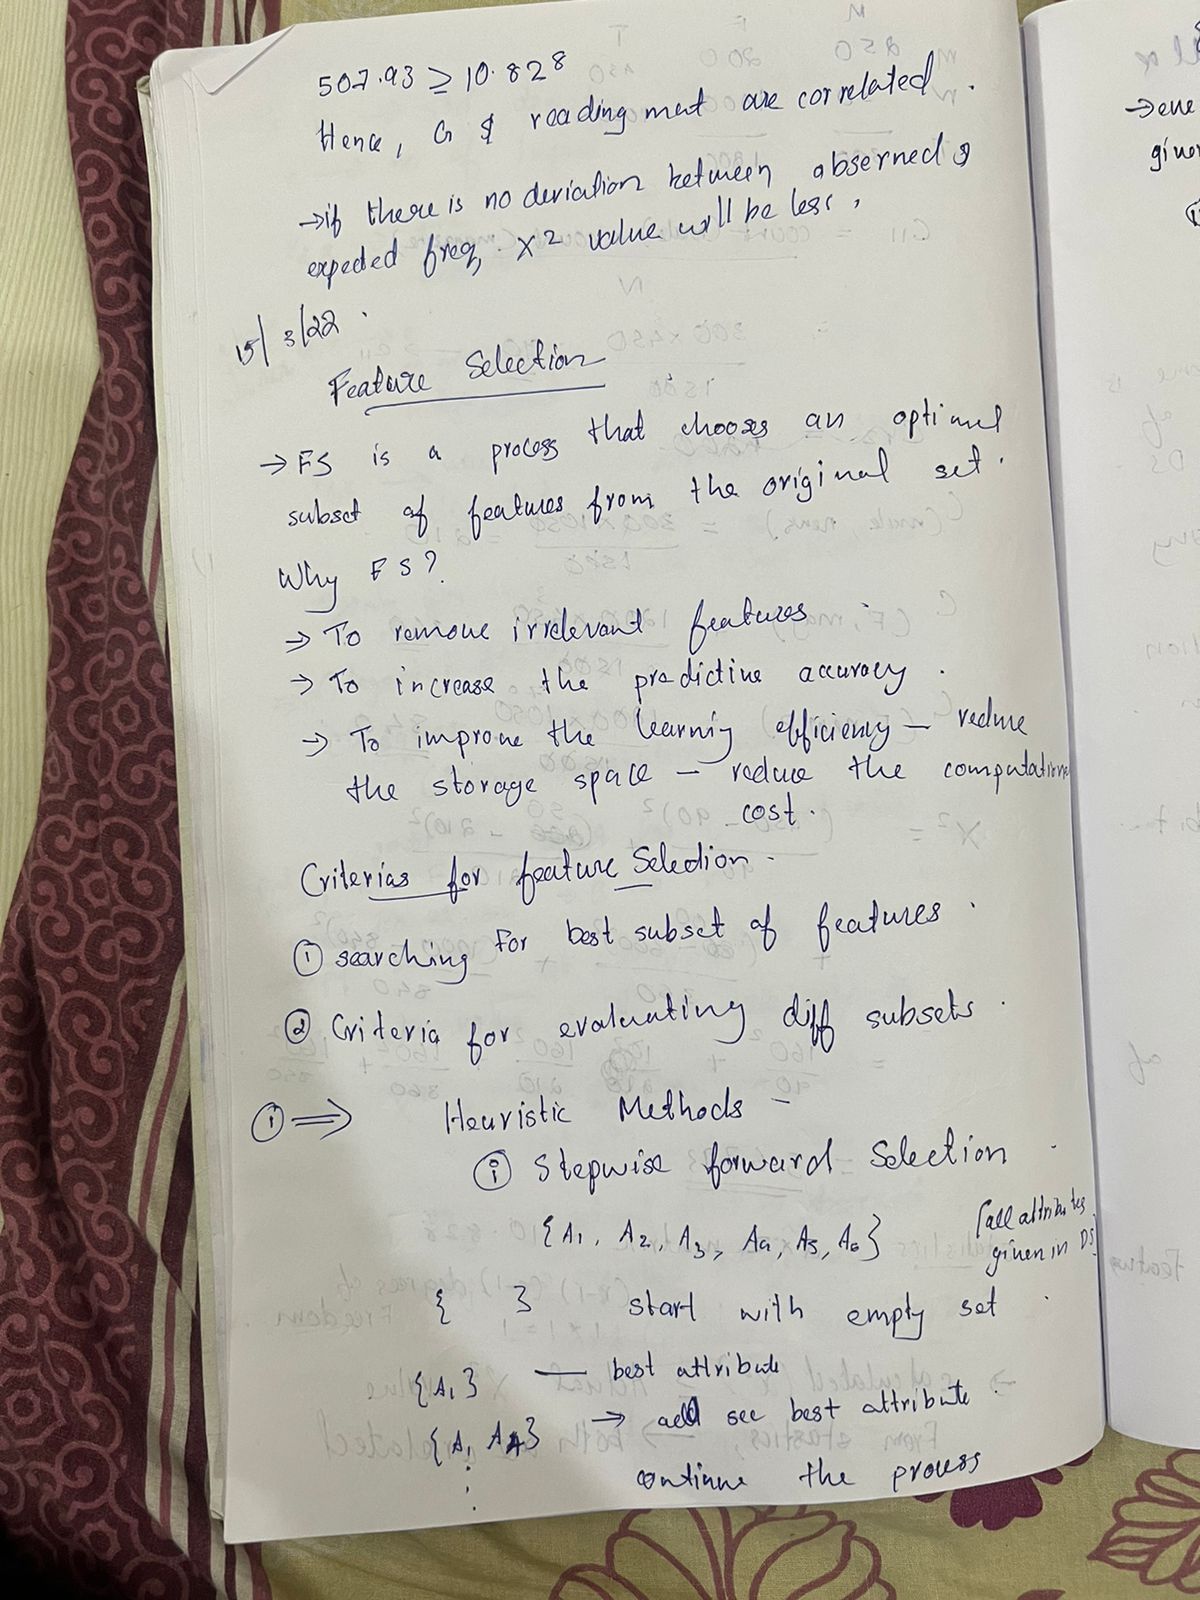 507.93 ≥ 10.828
Hence, G & reading mat are correlated.
→ if there is no deviation between observed &
expected freq, X² value will be less.
15/3/22
Feature Selection
→ FS is a process that chooses an optimal
subset of features from the original set.
Why FS?
→ To remove irrelevant features
→ To increase the predictive accuracy.
→ To improve the learning efficiency — reduce
the storage space — reduce the computation
cost.
Criterias for feature Selection -
① searching For best subset of features.
② Criteria for evaluating diff subsets.
① ⇒ Heuristic Methods -
ⓘ Stepwise forward Selection
{A1, A2, A3, A4, A5, A6} [all attributes
given in DS]
{ } start with empty set.
{A1} — best attribute
{A1 A4} → add sec best attribute.
⋮ continue the process
→ eve